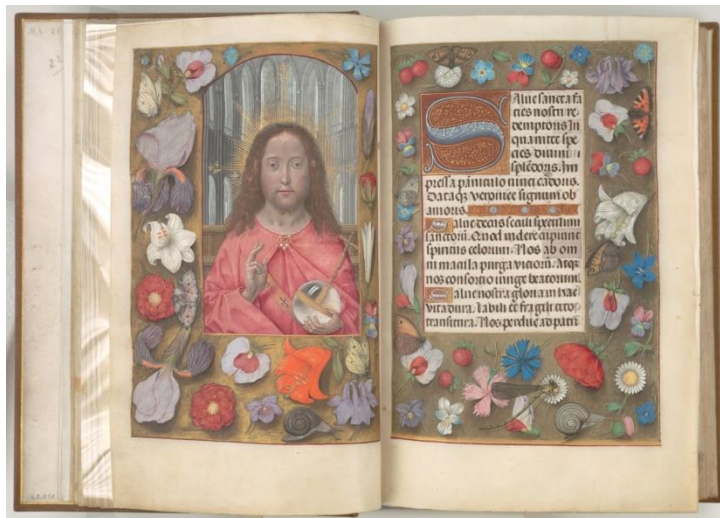 SAlue sancta fa
cies nostri re
demptoris In
qua nitet spe
cies diuini
splēdoris. Im
pressa pāniculo niuei cādoris.
Dataqꝫ veronice signum ob
amoris.
Salue decus seculi speculum
sanctorum. Quod videre cupiunt
spiritus celorum. Nos ab om
ni macula purga viciorū. Atqꝫ
nos consortio iunge beatorum.
Salue nostra gloria in hac
vita dura. Labili et fragili cito
transitura. Nos perduc ad patri